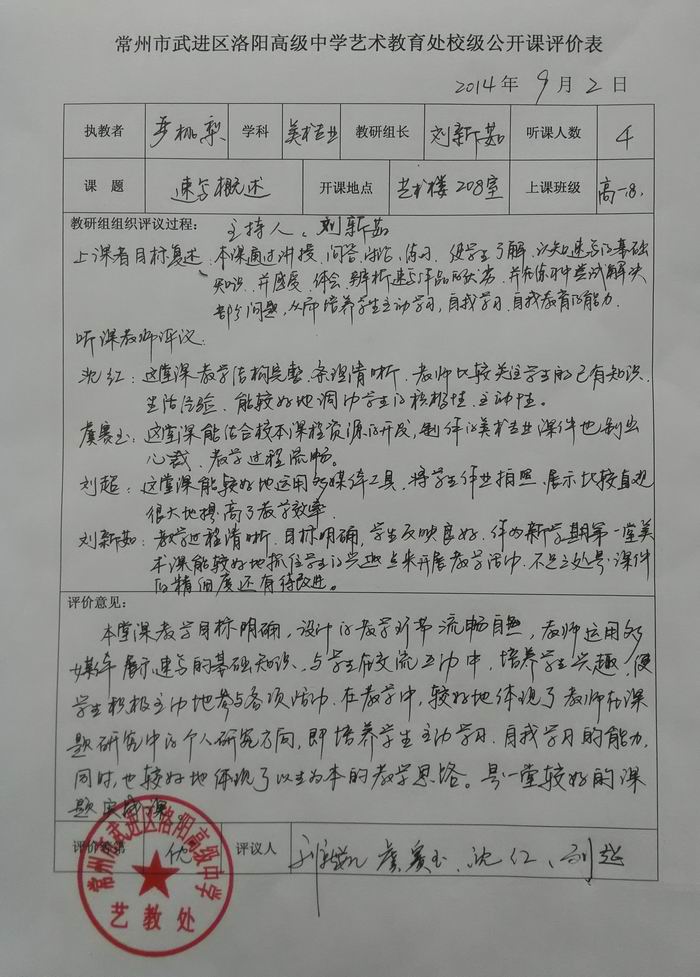 常州市武进区洛阳高级中学艺术教育处校级公开课评价表
2014年 9月 2日
执教者 学科 美术专业 教研组长 刘新茹 听课人数 4
课 题 速写概述 开课地点 艺术楼208室 上课班级 高一8.
教研组组织评议过程： 主持人：刘新茹
上课者目标复述：本课通过讲授、问答、讨论、练习，使学生了解、认知速写的基础
知识，并感度、体会、辨析速写作品的优劣，并在练习中尝试解决
部分问题，从而培养学生主动学习，自我学习、自我教育的能力.
听课教师评议：
沈红：这堂课教学结构完整，条理清晰，教师比较关注学生的已有知识、
生活经验，能较好地调动学生的积极性、主动性。
虞赛玉：这堂课能结合校本课程资源的开发，制作的美术专业课件也别出
心裁，教学过程流畅。
刘超：这堂课能较好地运用多媒体工具，将学生作业拍照、展示比较直观
很大地提高了教学效率.
刘新茹：教学过程清晰，目标明确，学生反映良好，作为新学期第一堂美
术课能较好地抓住学生的兴趣点来开展教学活动，不足之处是：课件
的精细度还有待改进。
评价意见：
本堂课教学目标明确，设计的教学环节流畅自然，教师运用多
媒体展示速写的基础知识，与学生在交流互动中，培养学生兴趣，使
学生积极主动地参与各项活动，在教学中，较好地体现了教师在课
题研究中的个人研究方向，即培养学生主动学习、自我学习的能力，
同时，也较好地体现了以生为本的教学思路。是一堂较好的课
题实践课。
评价等第 优 评议人 刘新茹 虞赛玉、沈红、刘超
常州市武进区洛阳高级中学
艺教处